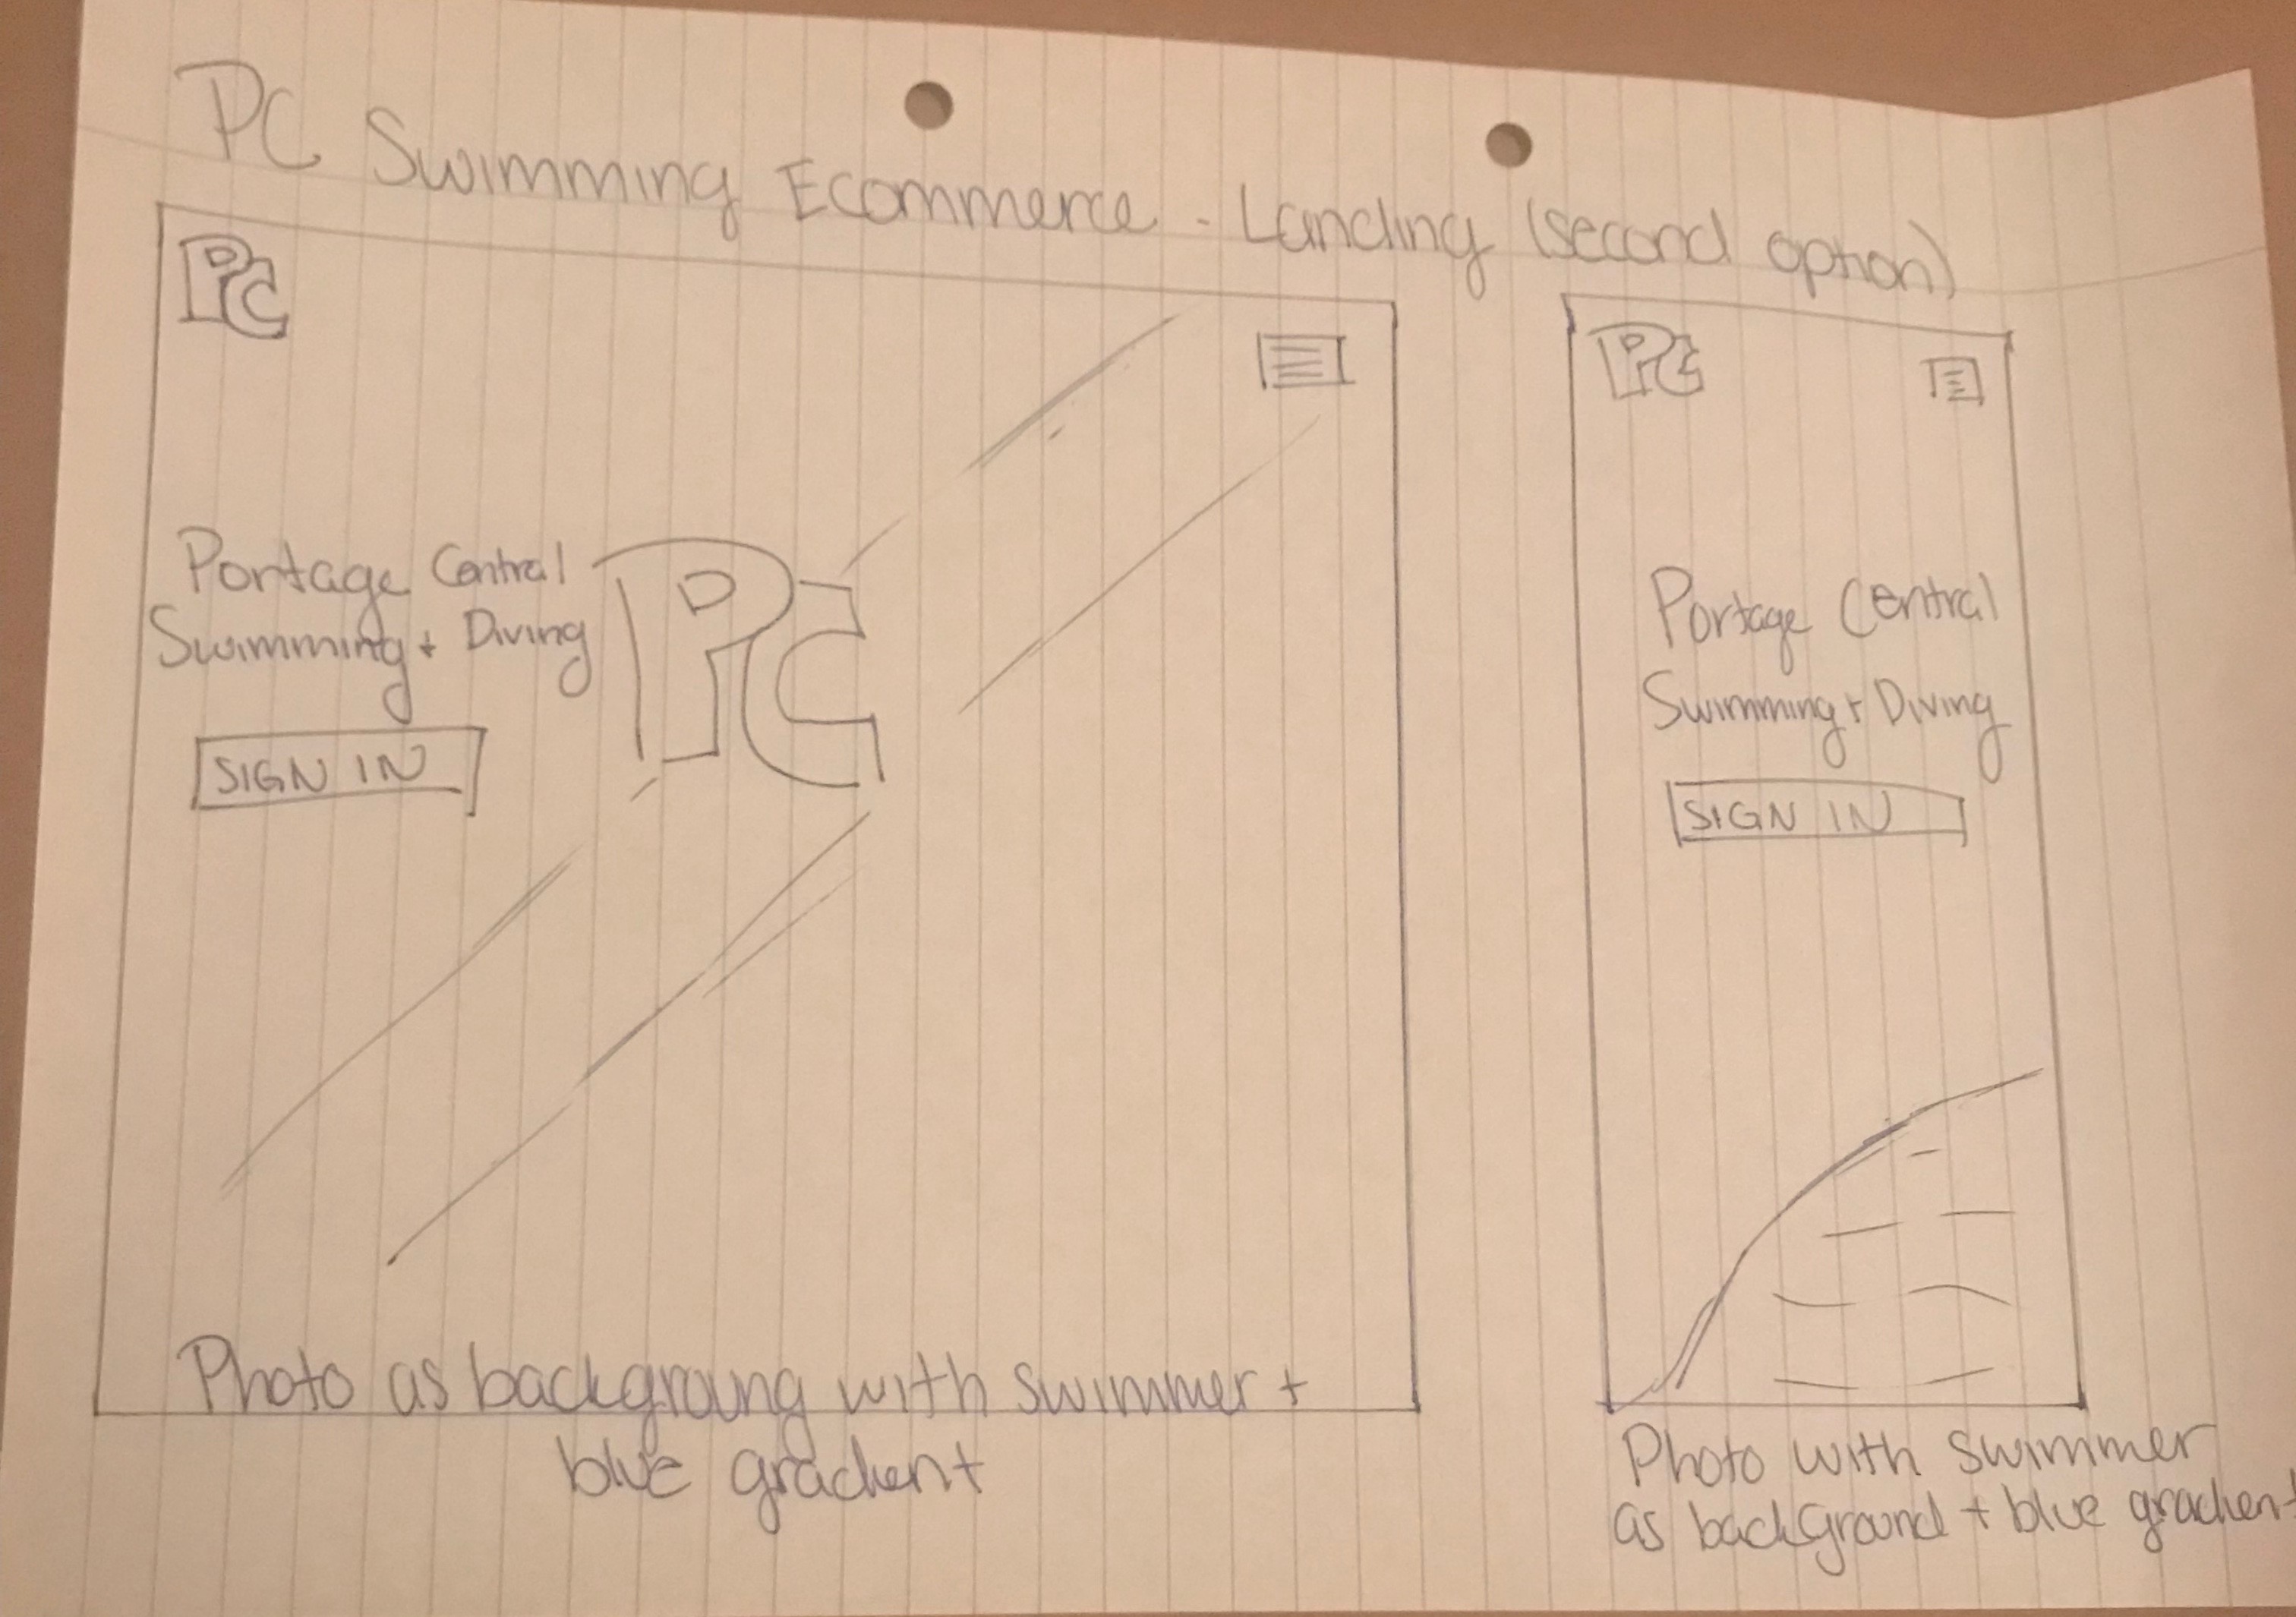 PC Swimming Ecommerce - Landing (second option)
PC
Portage Central
Swimming + Diving
PC
SIGN IN
Photo as backgroung with swimmer +
blue gradient
PC
Portage Central
Swimming + Diving
SIGN IN
Photo with swimmer
as background + blue gradient